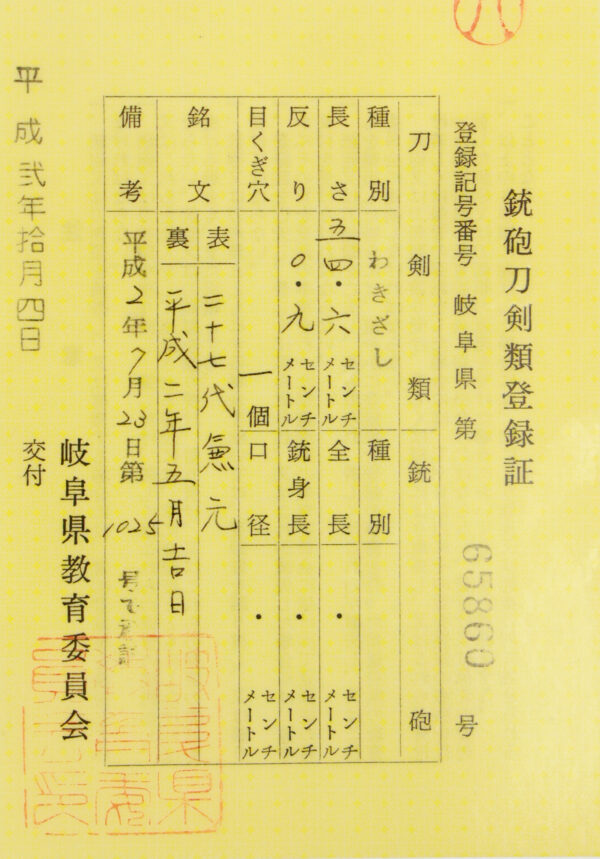 銃砲刀剣類登録証
登録記号番号 岐阜県 第 65860 号
刀剣類 銃砲
種別 わきざし 種別
長さ 五四・六 センチメートル 全長 ・ センチメートル
反り 〇・九 センチメートル 銃身長 ・ センチメートル
目くぎ穴 一個 口径 ・ センチメートル
銘文 表 二十七代兼元
裏 平成二年五月吉日
備考 平成2年7月23日第1025号で承認
岐阜県教育委員会
交付
平成弐年拾月四日